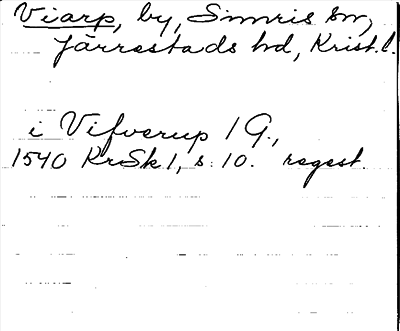 Viarp, by, Simris sn,
Järrestads hd, Krist. l.
i Vifverup 1 G.,
1540 KrSk 1, s. 10. regest.